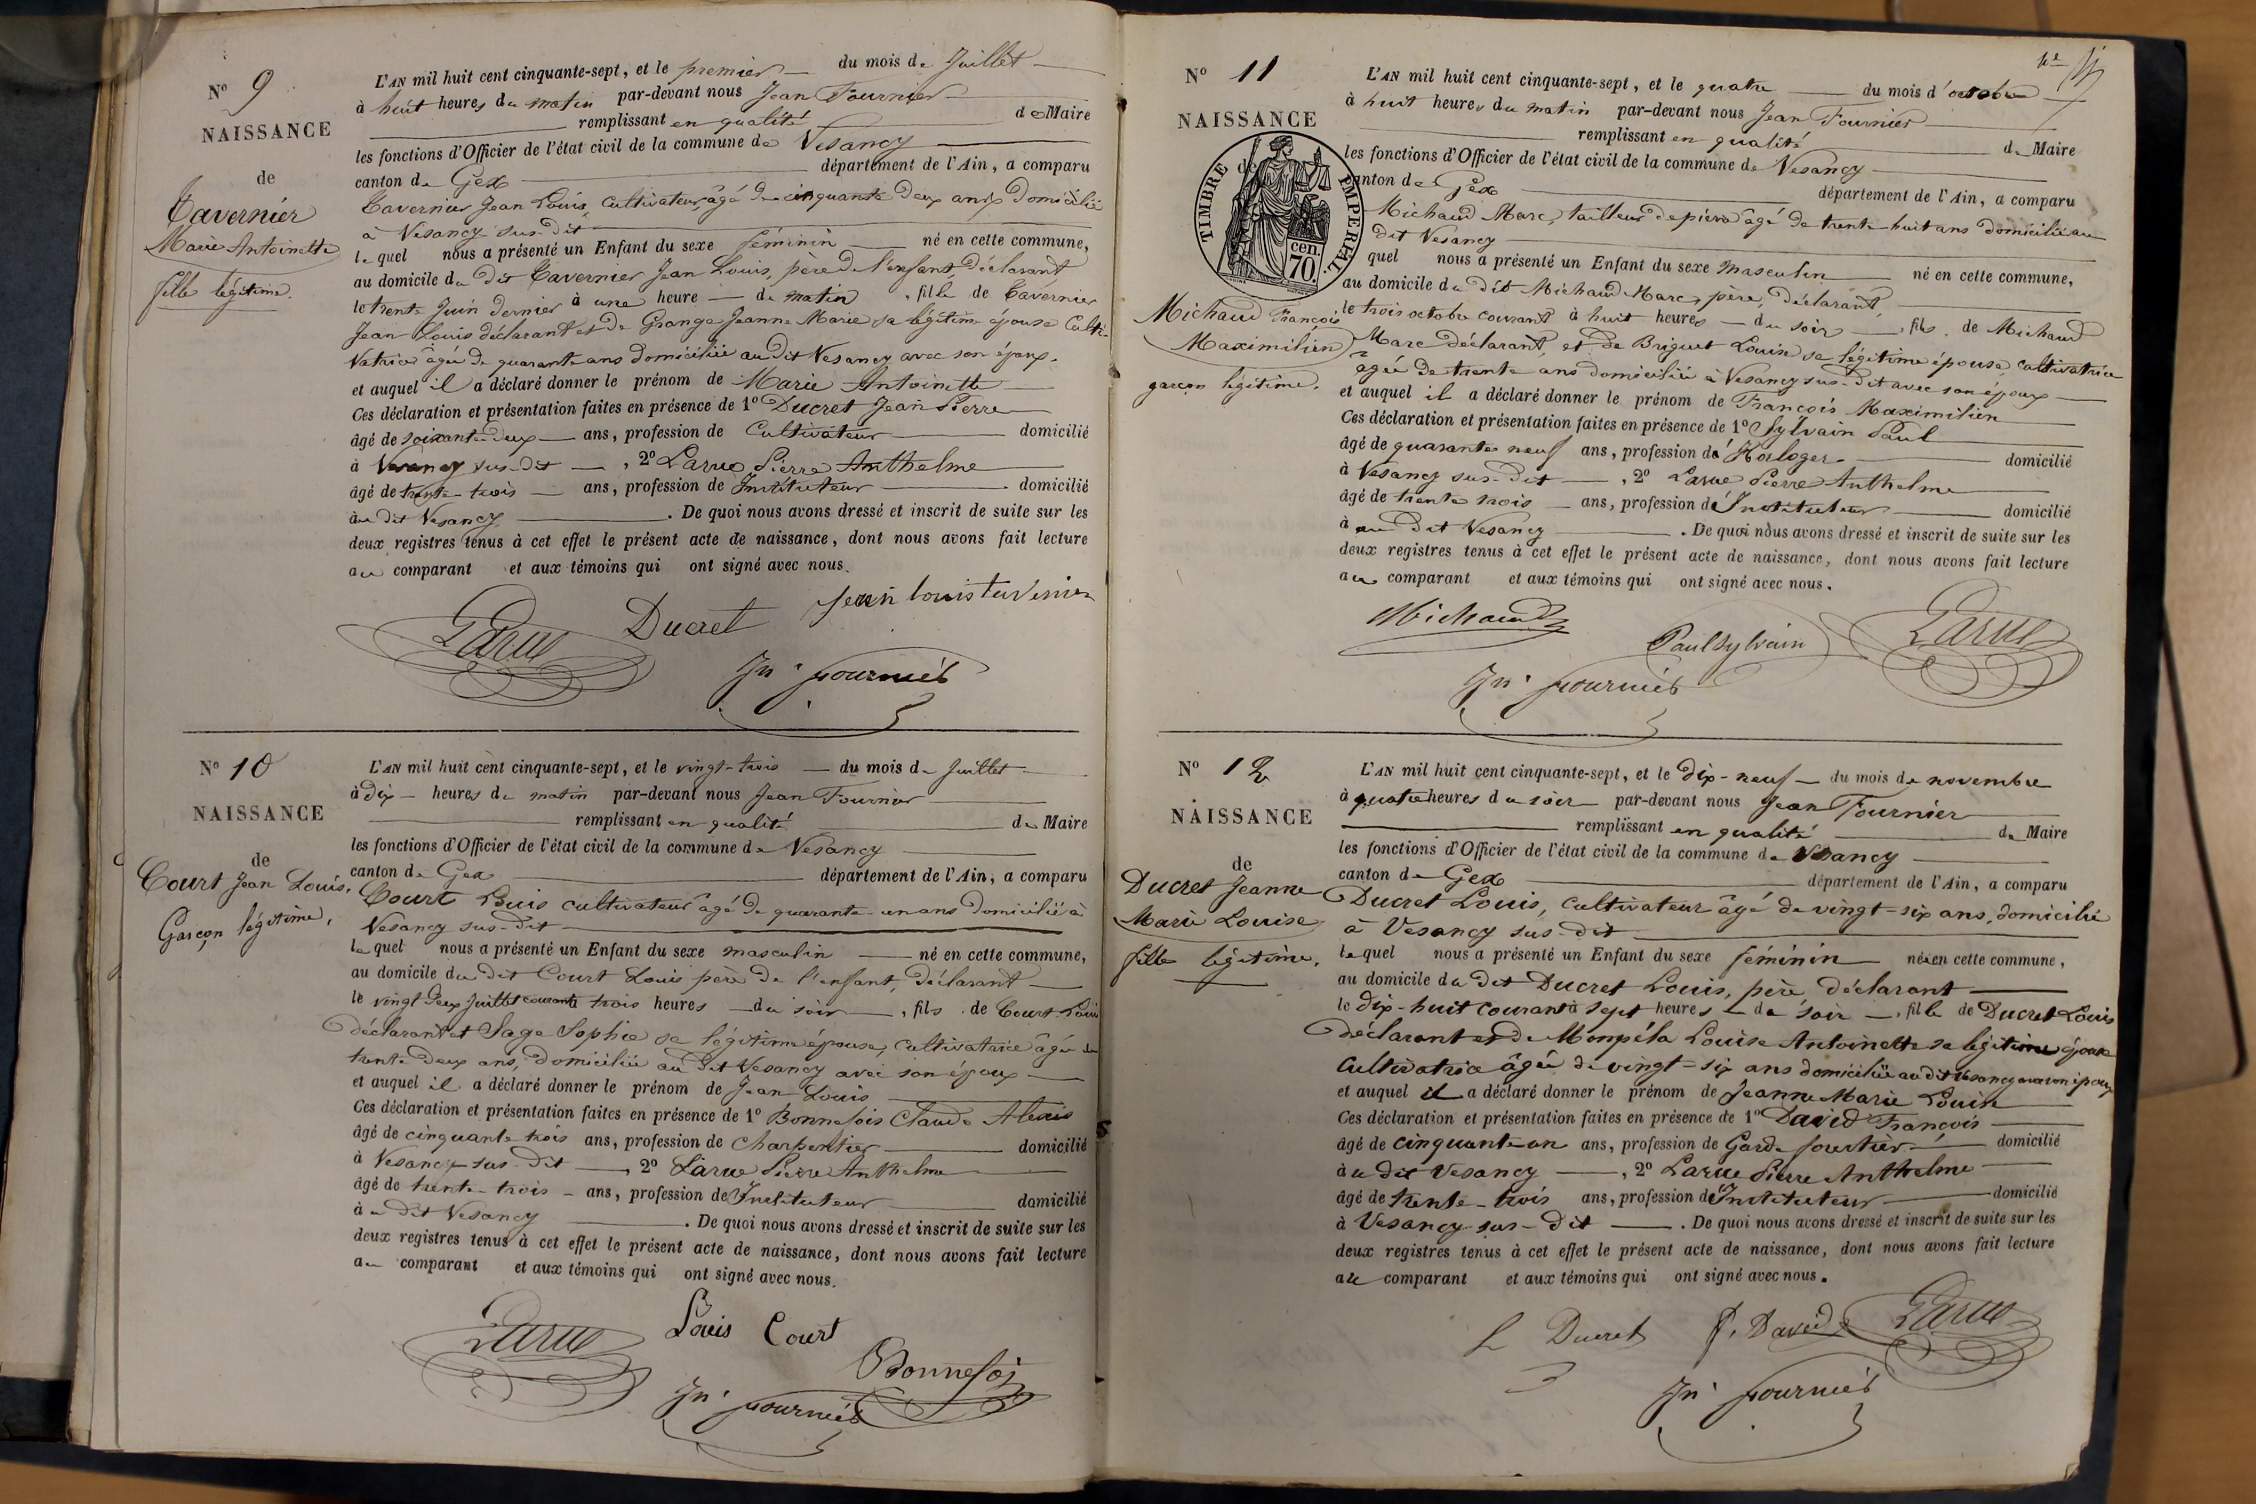 N° 9
NAISSANCE
de
Tavernier
Marie Antoinette
fille légitime.
L'AN mil huit cent cinquante-sept, et le premier du mois de Juillet
à huit heures du matin par-devant nous Jean Fournier
remplissant en qualité de Maire
les fonctions d'Officier de l'état civil de la commune de Vesancy
canton de Gex département de l'Ain, a comparu
Tavernier Jean Louis, cultivateur, âgé de cinquante deux ans domicilié
à Vesancy sus-dit
le quel nous a présenté un Enfant du sexe féminin né en cette commune,
au domicile du dit Tavernier Jean Louis, père de l'enfant, déclarant,
le trente Juin dernier à une heure de matin, fille de Tavernier
Jean Louis déclarant et de Grange Jeanne Marie sa légitime épouse Culti-
vatrice âgée de quarante ans domiciliée au dit Vesancy avec son époux.
et auquel il a déclaré donner le prénom de Marie Antoinette
Ces déclaration et présentation faites en présence de 1° Ducret Jean Pierre
âgé de soixante-deux ans, profession de Cultivateur domicilié
à Vesancy sus-dit, 2° Larue Pierre Anthelme
âgé de trente-trois ans, profession de Instituteur domicilié
au dit Vesancy. De quoi nous avons dressé et inscrit de suite sur les
deux registres tenus à cet effet le présent acte de naissance, dont nous avons fait lecture
au comparant et aux témoins qui ont signé avec nous.
Jean louis tavernier
Larue Ducret
Jn. fournier
N° 10
NAISSANCE
de
Court Jean Louis,
Garçon légitime.
L'AN mil huit cent cinquante-sept, et le vingt-trois du mois de Juillet
à dix heures de matin par-devant nous Jean Fournier
remplissant en qualité de Maire
les fonctions d'Officier de l'état civil de la commune de Vesancy
canton de Gex département de l'Ain, a comparu
Court Louis cultivateur âgé de quarante-un ans domicilié à
Vesancy sus-dit
le quel nous a présenté un Enfant du sexe masculin né en cette commune,
au domicile du dit Court Louis père de l'enfant, déclarant
le vingt deux Juillet courant à trois heures du soir, fils de Court Louis
déclarant et Sage Sophie sa légitime épouse, cultivatrice âgée de
trente deux ans, domiciliée au dit Vesancy avec son époux
et auquel il a déclaré donner le prénom de Jean Louis
Ces déclaration et présentation faites en présence de 1° Bonnefois Claude Alexis
âgé de cinquante-trois ans, profession de Charpentier domicilié
à Vesancy sus-dit, 2° Larue Pierre Anthelme
âgé de trente-trois ans, profession de Instituteur domicilié
à u dit Vesancy. De quoi nous avons dressé et inscrit de suite sur les
deux registres tenus à cet effet le présent acte de naissance, dont nous avons fait lecture
au comparant et aux témoins qui ont signé avec nous.
Larue Louis Court
Bonnefoi
Jn. fournier
N° 11
NAISSANCE
de
TIMBRE IMPERIAL.
70 cen.
Michaud François
Maximilien
garçon légitime.
L'AN mil huit cent cinquante-sept, et le quatre du mois d'octobre
à huit heures du matin par-devant nous Jean Fournier
remplissant en qualité de Maire
les fonctions d'Officier de l'état civil de la commune de Vesancy
canton de Gex département de l'Ain, a comparu
Michaud Marc, tailleur de pierre âgé de trente-huit ans domicilié au
dit Vesancy
quel nous a présenté un Enfant du sexe masculin né en cette commune,
au domicile du dit Michaud Marc, père, déclarant,
le trois octobre courant à huit heures du soir, fils de Michaud
Marc déclarant, et de Briguet Louise sa légitime épouse, cultivatrice
âgée de trente ans domiciliée à Vesancy sus-dit avec son époux
et auquel il a déclaré donner le prénom de François Maximilien
Ces déclaration et présentation faites en présence de 1° Sylvain Paul
âgé de quarante neuf ans, profession d'Horloger domicilié
à Vesancy sus-dit, 2° Larue Pierre Anthelme
âgé de trente trois ans, profession d'Instituteur domicilié
à au dit Vesancy. De quoi nous avons dressé et inscrit de suite sur les
deux registres tenus à cet effet le présent acte de naissance, dont nous avons fait lecture
au comparant et aux témoins qui ont signé avec nous.
Michaud
Paul Sylvain Larue
Jn. fournier
N° 12
NAISSANCE
de
Ducret Jeanne
Marie Louise
fille légitime.
L'AN mil huit cent cinquante-sept, et le dix-neuf du mois de novembre
à quatre heures du soir par-devant nous Jean Fournier
remplissant en qualité de Maire
les fonctions d'Officier de l'état civil de la commune de Vesancy
canton de Gex département de l'Ain, a comparu
Ducret Louis, cultivateur âgé de vingt-six ans, domicilié
à Vesancy sus-dit
le quel nous a présenté un Enfant du sexe féminin né en cette commune,
au domicile du dit Ducret Louis, père déclarant
le dix-huit courant à sept heures du soir, fille de Ducret Louis
déclarant et de Monpéla Louise Antoinette sa légitime épouse
cultivatrice âgée de vingt-six ans domiciliée au dit Vesancy avec son époux
et auquel il a déclaré donner le prénom de Jeanne Marie Louise
Ces déclaration et présentation faites en présence de 1° David François
âgé de cinquante-un ans, profession de Garde fourtier domicilié
à u dit Vesancy, 2° Larue Pierre Anthelme
âgé de trente-trois ans, profession d'Instituteur domicilié
à Vesancy sus-dit. De quoi nous avons dressé et inscrit de suite sur les
deux registres tenus à cet effet le présent acte de naissance, dont nous avons fait lecture
au comparant et aux témoins qui ont signé avec nous.
L Ducret F. David Larue
Jn. fournier